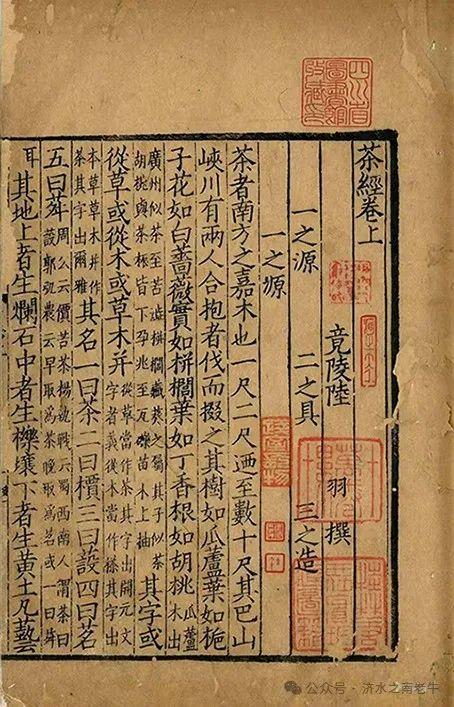 四川省圖書館收藏印
茶經卷上
竟陵陸羽撰
一之源 二之具 三之造
一之源
茶者南方之嘉木也一尺二尺迺至數十尺其巴山
峽川有兩人合抱者伐而掇之其樹如瓜蘆葉如梔
子花如白薔薇實如栟櫚葉如丁香根如胡桃瓜蘆木出
廣州似茶至苦澁栟櫚蒲葵之屬其子似茶胡桃與茶根皆下孕兆至瓦礫苗木上抽其字或
從草或從木或草木并從草當作茶其字出開元文字音義從木當作㯆其字出
本草草木并作荼其字出爾雅其名一曰茶二曰檟三曰蔎四曰茗
五曰荈周公云檟苦茶揚執戟云蜀西南人謂茶曰蔎郭弘農云早取為茶晚取為茗或一曰荈
耳其地上者生爛石中者生櫟壤下者生黃土凡藝
公众号·济水之南老牛